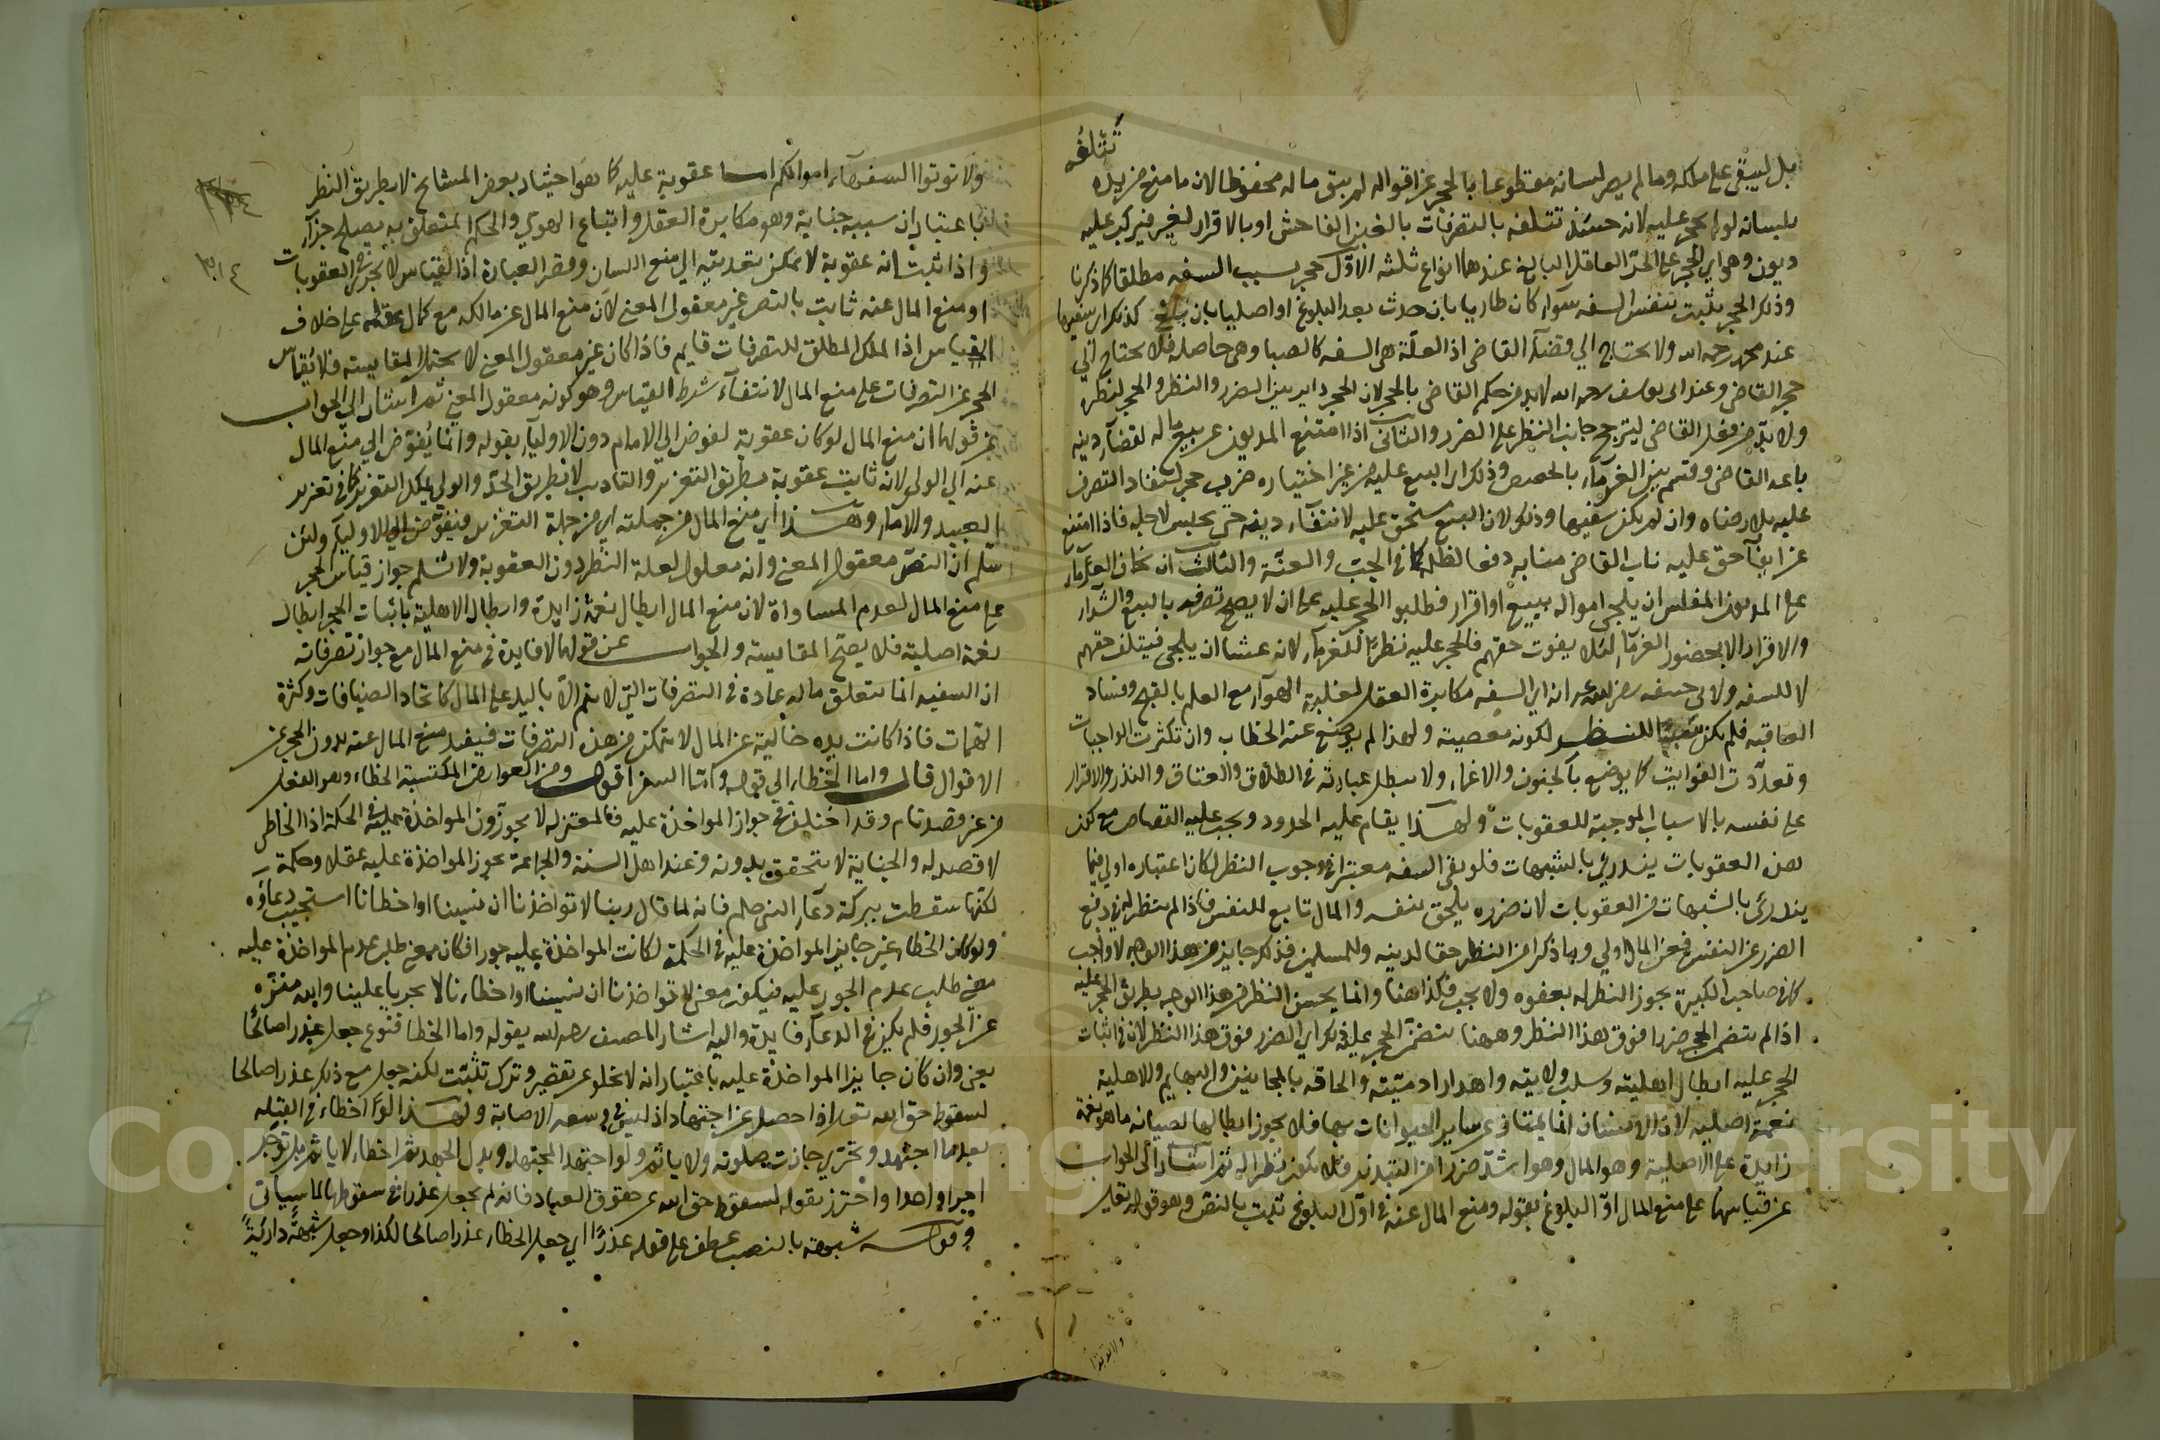 بل ليبقى على ملكه وما لم يصر لسانه مقطوعا بالحجر عن اقواله لم يبق ماله محفوظا لان ما منع من يده
تتلفه
بلسانه لو لم يحجر عليه لانه حينئذ تتلفه بالتصرفات بالغبن الفاحش او بالاقرار لغير فيركب عليه
ديون وهو اي الحجر على الحر العاقل البالغ عندهما انواع ثلثة الاول حجر بسبب السفه مطلقا كما ذكرنا
وذلك الحجر يثبت بنفس السفه سواء كان طاريا بان حدث بعد البلوغ او اصليا بان بلغ كذلك اي سفيها
عند محمد رحمه الله ولا يحتاج الي قضاء القاضي اذ العلة هي السفه كالصبا وهي حاصلة فلا يحتاج الي
حجر القاضي وعند ابي يوسف رحمه الله لابد من حكم القاضي بالحجر لان الحجر داير بين الضرر والنظر والحجر لنظره
ولا بد من فعل القاضي ليترجح جانب النظر على الضرر والثاني اذا امتنع المديون عن بيع ماله لقضاء دينه
باعه القاضي وقسم بين الغرماء بالحصص وذلك اي البيع عليه من غير اختياره ضرب حجر لنفاذ التصرف
عليه بلا رضاه وان لم يكن سفيها وذلك لان البيع مستحق عليه لانتفاء دينه حتى يحبس لاجله فاذا امتنع
عن ايفاء حق عليه ناب القاضي منابه دفعا لظلمه كما في الجب والعنة والثالث ان يخاف الغرماء
على المديون المفلس ان يلجي امواله ببيع او اقرار فطلبوا الحجر عليه على ان لا يصح تصرفه بالبيع والشراء
والاقرار الا بحضور الغرماء لئلا يفوت حقهم فالحجر عليه نظرا للغرماء لانه عشا ان يلجي فيتلف حقهم
لا للسفه ولابي حنيفه رضي الله عنه انه اي السفه مكابرة العقل لغلبة الهوآء مع العلم بالقبح وفساد
العاقبه فلم يكن سببا للنظر لكونه معصية ولهذا لم يوضع عنه الخطاب وان تكثرت الواجبات
وتعددت الفوايت كما يوضع بالجنون والاغماء ولا يبطل عبارته في الطلاق والعتاق والنذر والاقرار
على نفسه بالاسباب الموجبة للعقوبات ولهذا يقام عليه الحدود ويجب عليه القصاص مع كون
هذه العقوبات يندرئ بالشبهات فلو بقي السفه معتبرا في وجوب النظر لكان اعتباره اولى فيما
يندرئ بالشبهات من العقوبات لان ضرره يلحق بنفسه والمال تابع للنفس فاذا لم ينظر له في دفع
الضرر عن النفس فعن المال اولي وما ذكرا من النظر حقا لدينه وللمسلمين فذلك جايز من هذا الوجه لا واجب
كما في صاحب الكبيرة يجوز النظر له بعفوه ولا يجب فكذا هنا وانما يحسن النظر من هذا الوجه بطريق الحجر عليه
اذا لم يتضمن الحجر ضررا فوق هذا النظر وههنا يتضمن الحجر عليه ذلك اي الضرر فوق هذا النظر لان في اثبات
الحجر عليه ابطال اهليته وسلب ولايته واهدار ادميته والحاقه بالمجانين والبهايم والاهلية
نعمة اصلية لان الانسان انما يمتاز عن ساير الحيوانات بها فلا يجوز ابطالها لصيانه ما هو نعمة
زايدة على الاصلية وهو المال وهو اشد ضررا من التبذير فلا يكون نظرا له ثم اشار الى الجواب
عن قياسهما على منع المال اول البلوغ بقوله ومنع المال عنه في اول البلوغ ثبت بالنص وهو قوله تعالى
ولا توتوا
ولا توتوا السفهاء اموالكم اما عقوبة عليه كما هو احتيار بعض المشايخ لا بطريق النظر
باعتبار ان سببه جناية وهو مكابرة العقل واتباع الهوي والحكم المتعلق به يصلح جزآء
واذا ثبت انه عقوبة لا يمكن تعديته الي منع اللسان وقصر العبارة اذ القياس لا يجري في العقوبات
٣١٤
او منع المال عنه ثابت بالنص غير معقول المعني لان منع المال عن مالكه مع كمال عقله على خلاف
القياس اذ الملك المطلق للتصرفات قايم فاذا كان غير معقول المعني لا يحتمل المقايسة فلا يقاس
الحجر عن التصرفات على منع المال لانتفاء شرط القياس وهو كونه معقول المعني ثم اشار الي الجواب
عن قولهما ان منع المال لو كان عقوبة لفوض الي الامام دون الاوليآء بقوله وانما يفوض الي منع المال
عنه الي الولي لانه ثابت عقوبة بطريق التعزير والتاديب لا بطريق الحد والولي يملك التعزير كما في تعزير
العبيد والاماء وهذا اي منع المال من جملته اي من جملة التعزير فيفوض الي الاوليآء ولئن
سلم ان النص معقول المعني وانه معلول لعلة النظر دون العقوبة ولا نسلم جواز قياس الحجر
على منع المال لعدم المساواة لان منع المال ابطال نعمة زايدة وابطال الاهلية باثبات الحجر ابطال
نعمة اصلية فلا يصح المقايسة والجواب عن قولهما لا فايدة في منع المال مع جواز تصرفاته
ان السفيه انما يتعلق ماله عادة في التصرفات التي لا يتم الا باليد على المال كاتخاذ الضيافات وكثرة
الهبات فاذا كانت يده خالية عن المال لا يتمكن من هذه التصرفات فيفيد منع المال عنه بدون الحجر عن
الاقوال قال واما الخطاء الي قوله واما السفر اقول ومن العوارض المكتسبة الخطاء وهو الفعل
من غير قصد تام وقد اختلف في جواز المواخذة عليه فالمعتزله لا يجوزون المواخذة عليه في الحكمة اذ الخاطي
لا قصد له والجناية لا يتحقق بدونه وعند اهل السنة والجماعة يجوز المواخذة عليه عقلا وحكمة
لكنها سقطت ببركة دعاء النبي صلعم فانه لما قال ربنا لا تواخذنا ان نسينا او اخطانا استجيب دعاؤه
ولو كان الخطاء غير جايز المواخذة عليه في الحكمة لكانت المواخذة عليه جورا فكان معني طلب عدم المواخذة عليه
معني طلب عدم الجور عليه فيكون معني لا تواخذنا ان نسينا او اخطاءنا لا تجر يا علينا والله منزه
عن الجور فلم يكن في الدعآء فايدة واليه اشار المصنف رحمه الله بقوله واما الخطا فنوع جعل عذرا صالحا
يعني وان كان جايزا المواخذة عليه باعتبار انه لا يخلو عن تقصير وترك تثبت لكنه جعل مع ذلك عذرا صالحا
لسقوط حق الله تعالى اذا حصل عن اجتهاد اذ ليس في وسعه الاصابة ولهذا لو اخطاء في القبله
بعدما اجتهد وتحري جازت صلوته ولا ياثم ولو اجتهد المجتهد وبذل الجهد ثم اخطاء لا ياثم بل توجر
اجرا واحدا واحترز بقوله لسقوط حق الله عن حقوق العباد فانه لم يجعل عذرا في سقوطها لما سياتي
وقوله شبهة بالنصب عطف على قوله عذرا اي جعل الخطاء عذرا صالحا لكذا وجعل شبهة دارئة